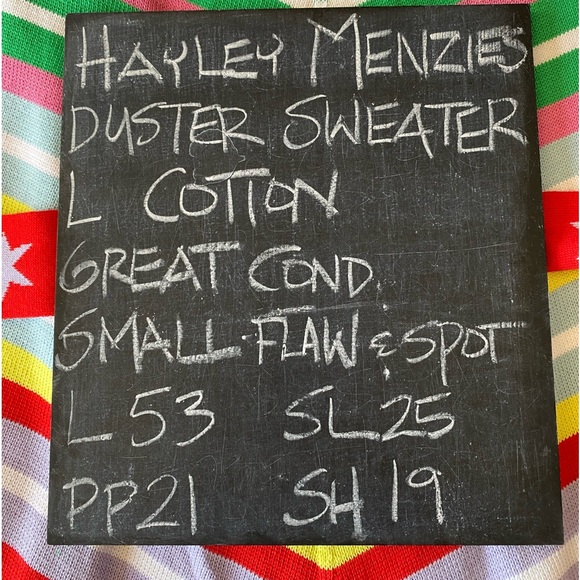 HAYLEY MENZIES
DUSTER SWEATER
L COTTON
GREAT COND.
SMALL FLAW & SPOT
L 53 SL 25
PP 21 SH 19